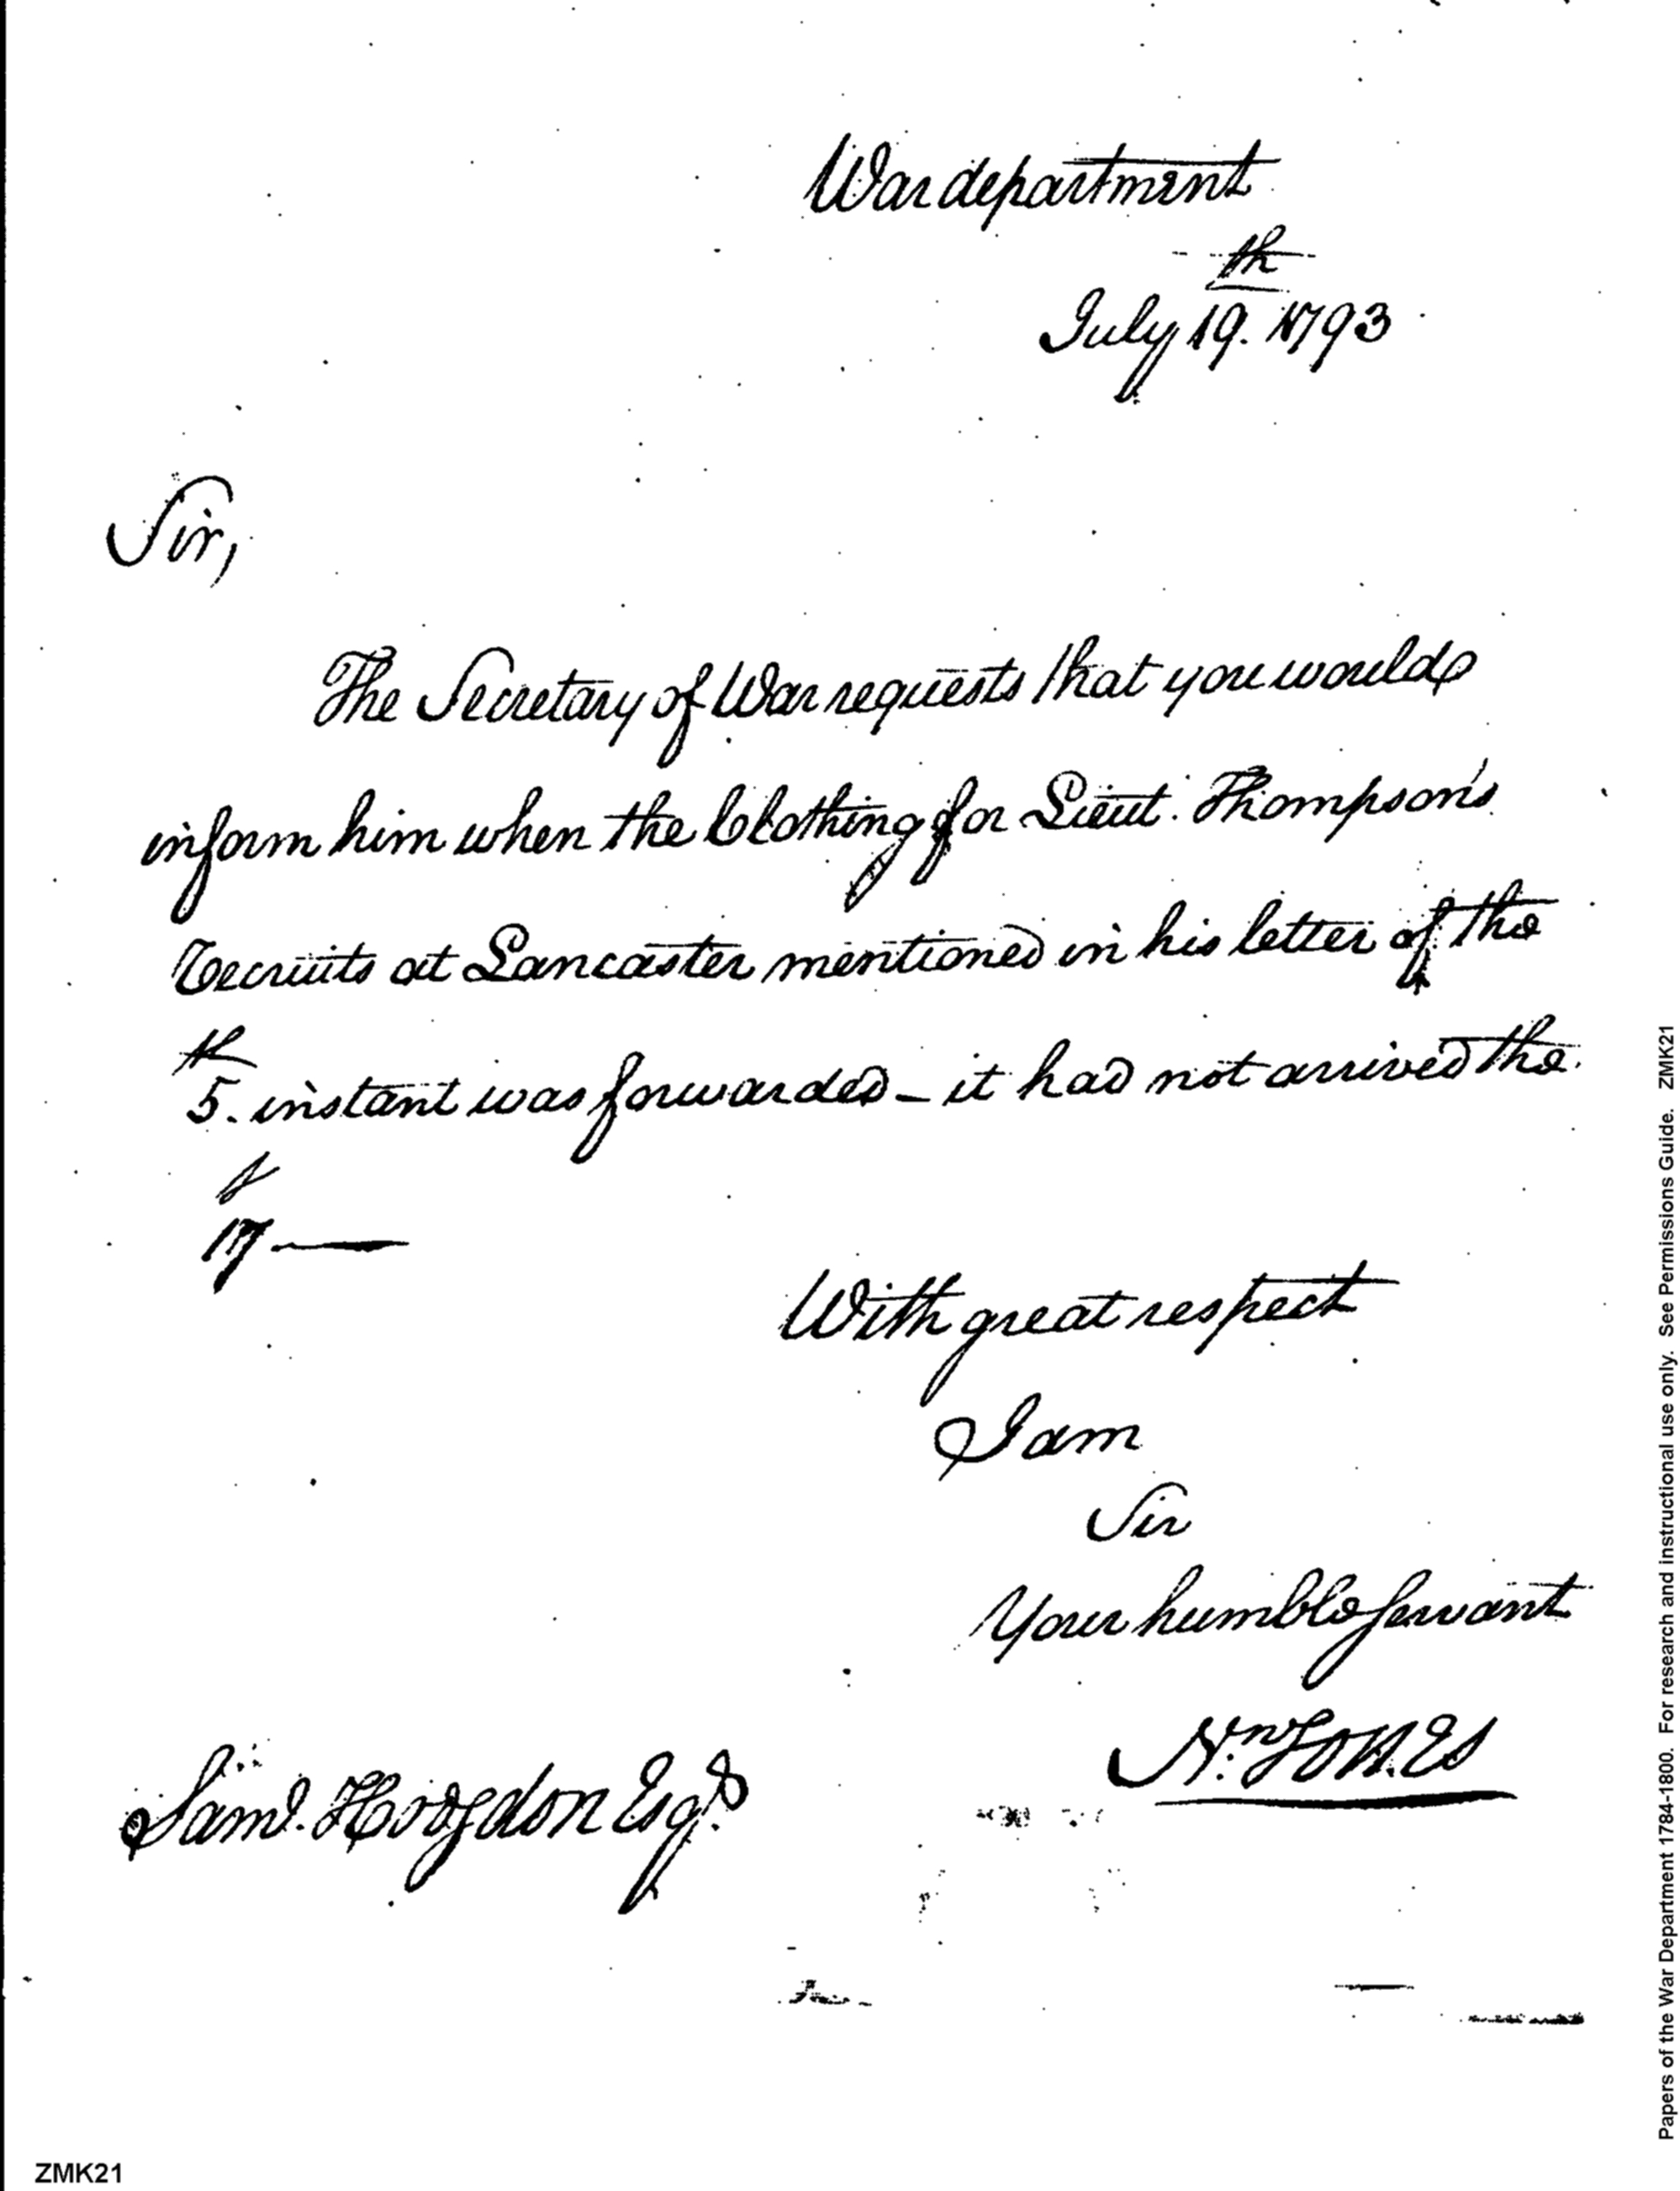 War department
July 19.th 1793
Sir,
The Secretary of War requests that you would
inform him when the Clothing for Lieut. Thompson's
Recruits at Lancaster mentioned in his letter of the
5.th instant was forwarded – it had not arrived the
17th —
With great respect
I am
Sir
Your humble servant
Saml. Hodgdon Esqr.
Jn. Jones
Papers of the War Department 1784-1800. For research and instructional use only. See Permissions Guide. ZMK21
ZMK21